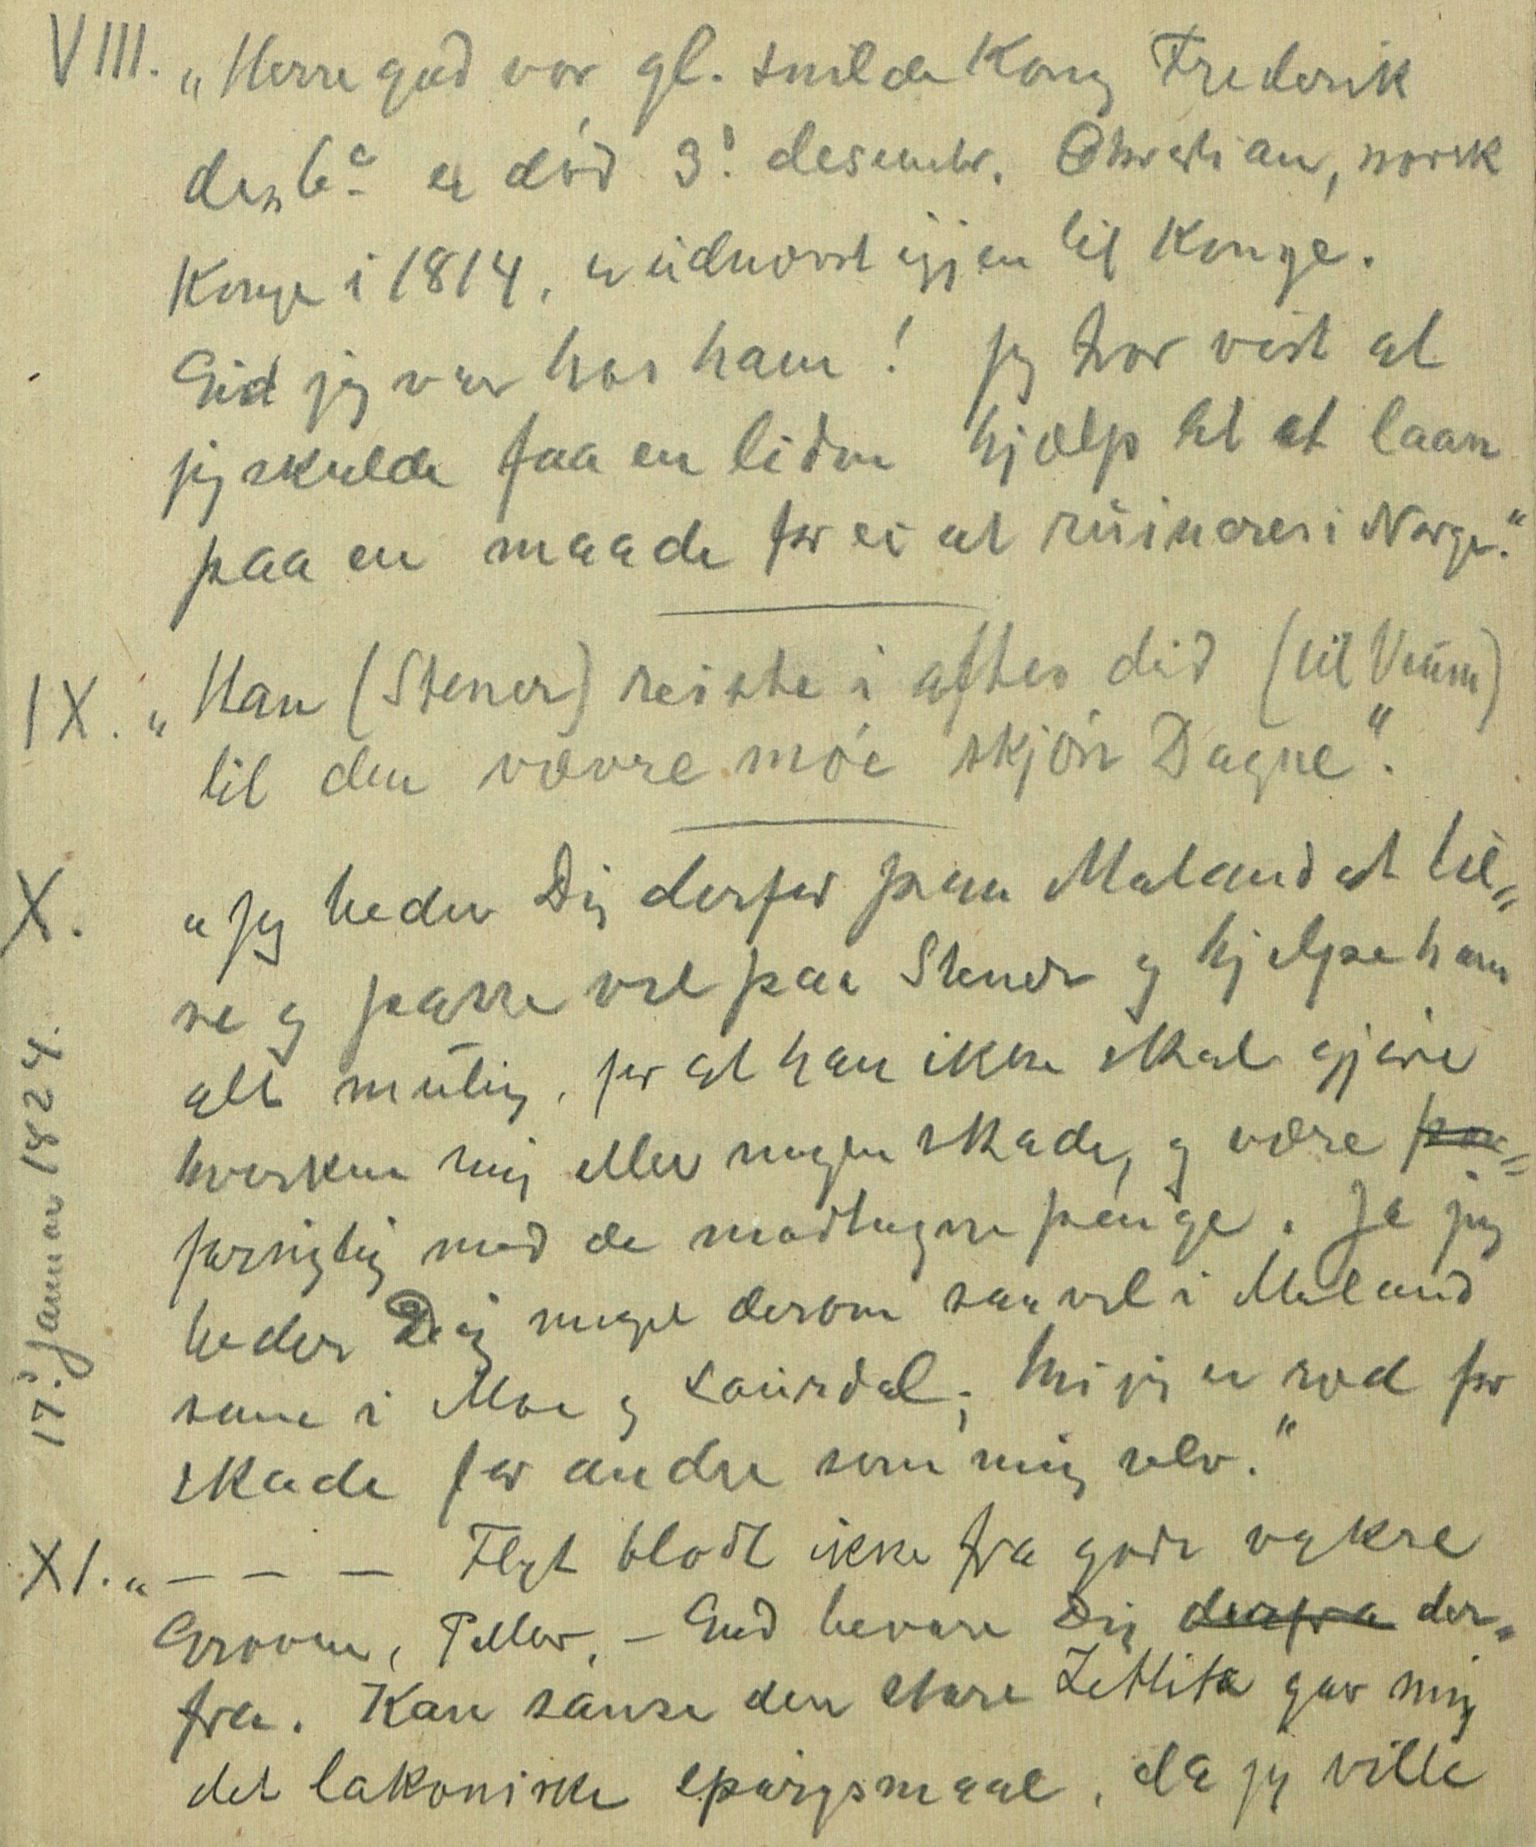 VIII. „Herre gud vor gl. snilde Kong Frederik
den 6e er død 3! desembr. Christian, norsk
Konge i 1814, er udnævnt igjen til Konge.
Gid jeg var hos ham! Jeg tror vist at
jeg skulde faa en liden hjælp til et laan
paa en maade for ei at ruineres i Norge."
IX. „Han (Stener) reiste i aftes did (til Veum)
til den vævre møe skjøn Dagne".
X. „Jeg beder Dig derfor paa Maland at til-
se og passe vel paa Stener og hjelpe ham
alt mulig, for at han ikke skal gjøre
hverken mig eller nogen skade, og være for-
forsigtig med de modtagne penge. Ja jeg
beder Dig meget derom saavel i Maland
som i Moe og Laurdal; thi jeg er ræd for
skade for andre som mig selv."
17! Januar 1824.
XI. „— — — Flyt blodt ikke fra gode vakre
Groven, Peller, – Gud bevare Dig derfra der-
fra. Kan sanse den store Zetlitz gav mig
det lakoniske spørgsmaal, da jeg ville